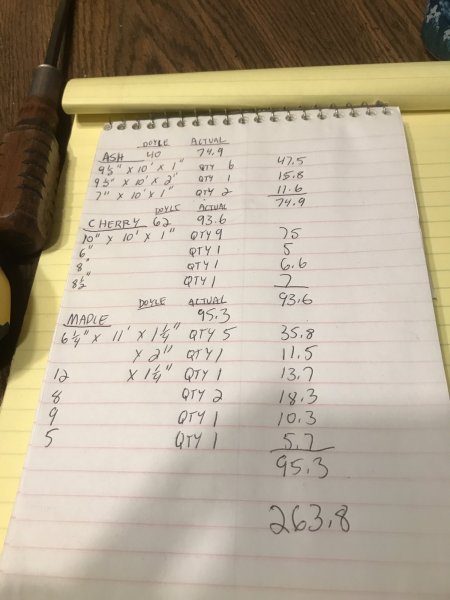 DOYLE ACTUAL
ASH 40 74.9
9½" X 10' X 1" QTY 6 47.5
9½" X 10' X 2" QTY 1 15.8
7" X 10' X 1" QTY 2 11.6
74.9
DOYLE ACTUAL
CHERRY 62 93.6
10" X 10' X 1" QTY 9 75
6" QTY 1 5
8" QTY 1 6.6
8½" QTY 1 7
93.6
DOYLE ACTUAL
MAPLE 95.3
6¼" X 11' X 1¼" QTY 5 35.8
X 2" QTY 1 11.5
12 X 1¼" QTY 1 13.7
8 QTY 2 18.3
9 QTY 1 10.3
5 QTY 1 5.7
95.3
263.8